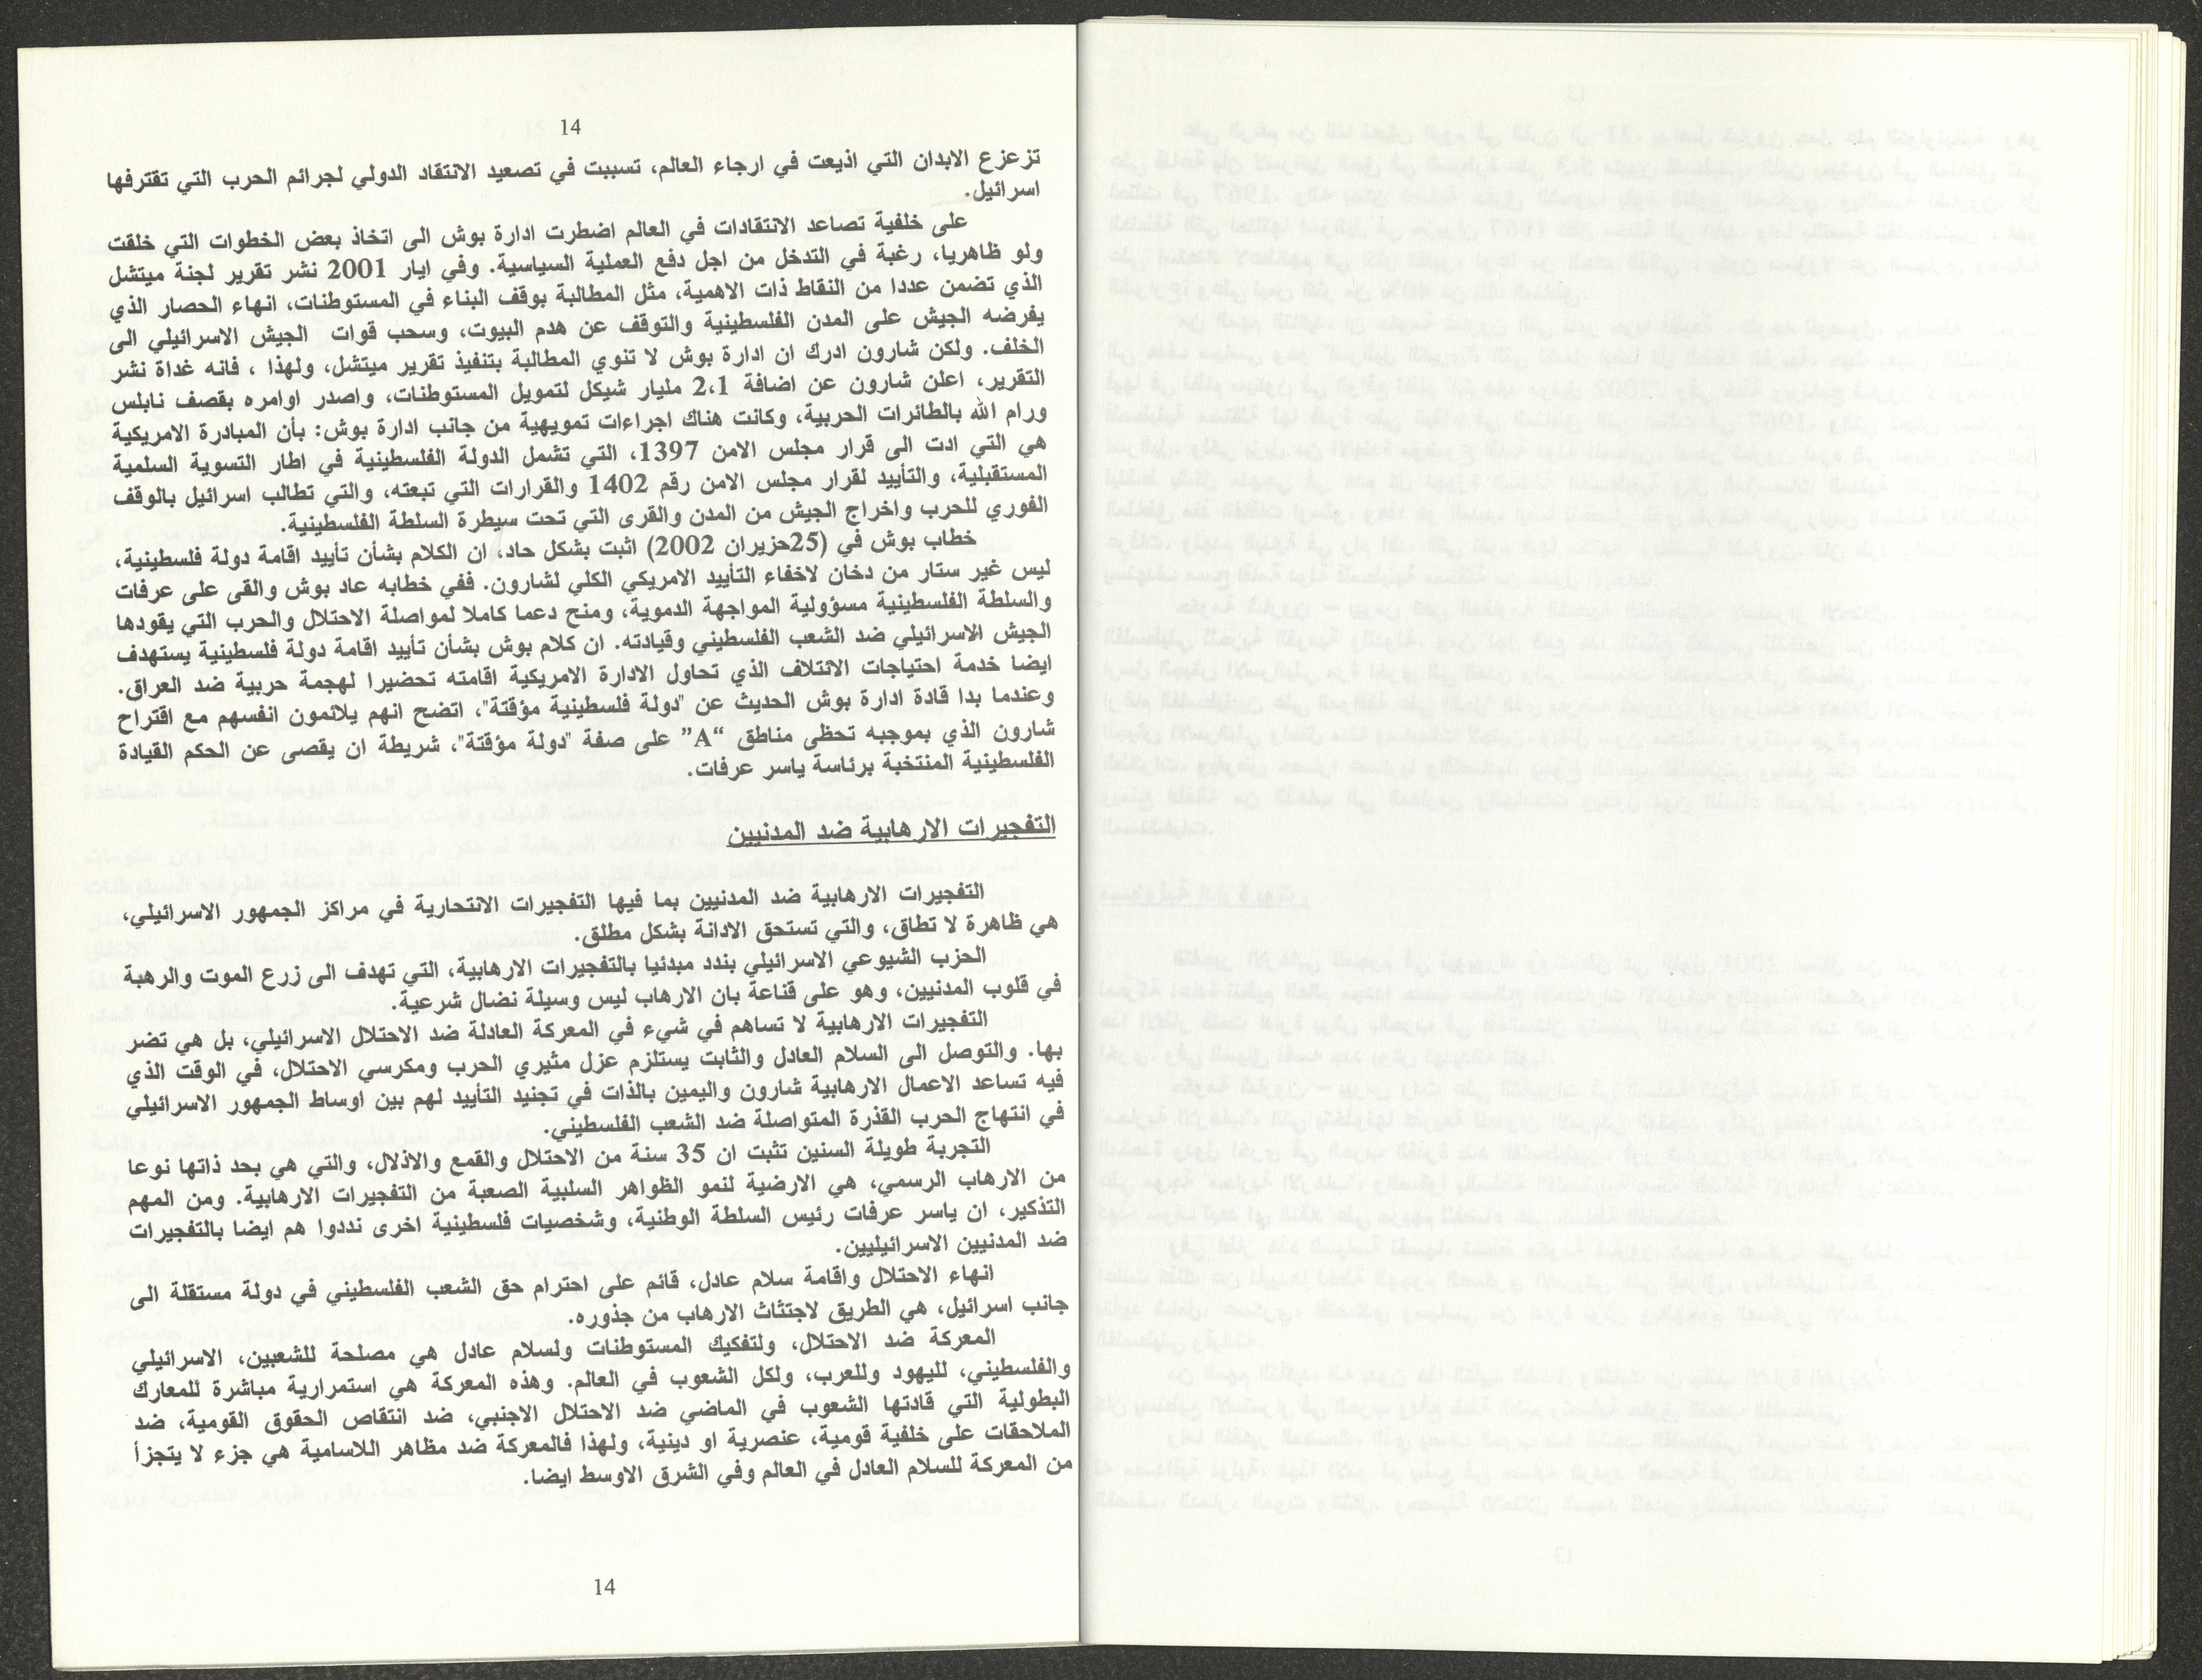 14
تزعزع الابدان التي اذيعت في ارجاء العالم، تسببت في تصعيد الانتقاد الدولي لجرائم الحرب التي تقترفها
اسرائيل.
على خلفية تصاعد الانتقادات في العالم اضطرت ادارة بوش الى اتخاذ بعض الخطوات التي خلقت
ولو ظاهريا، رغبة في التدخل من اجل دفع العملية السياسية. وفي ايار 2001 نشر تقرير لجنة ميتشل
الذي تضمن عددا من النقاط ذات الاهمية، مثل المطالبة بوقف البناء في المستوطنات، انهاء الحصار الذي
يفرضه الجيش على المدن الفلسطينية والتوقف عن هدم البيوت، وسحب قوات الجيش الاسرائيلي الى
الخلف. ولكن شارون ادرك ان ادارة بوش لا تنوي المطالبة بتنفيذ تقرير ميتشل، ولهذا ، فانه غداة نشر
التقرير، اعلن شارون عن اضافة 2،1 مليار شيكل لتمويل المستوطنات، واصدر اوامره بقصف نابلس
ورام الله بالطائرات الحربية، وكانت هناك اجراءات تمويهية من جانب ادارة بوش: بأن المبادرة الامريكية
هي التي ادت الى قرار مجلس الامن 1397، التي تشمل الدولة الفلسطينية في اطار التسوية السلمية
المستقبلية، والتأييد لقرار مجلس الامن رقم 1402 والقرارات التي تبعته، والتي تطالب اسرائيل بالوقف
الفوري للحرب واخراج الجيش من المدن والقرى التي تحت سيطرة السلطة الفلسطينية.
خطاب بوش في (25حزيران 2002) اثبت بشكل حاد، ان الكلام بشأن تأييد اقامة دولة فلسطينية،
ليس غير ستار من دخان لاخفاء التأييد الامريكي الكلي لشارون. ففي خطابه عاد بوش والقى على عرفات
والسلطة الفلسطينية مسؤولية المواجهة الدموية، ومنح دعما كاملا لمواصلة الاحتلال والحرب التي يقودها
الجيش الاسرائيلي ضد الشعب الفلسطيني وقيادته. ان كلام بوش بشأن تأييد اقامة دولة فلسطينية يستهدف
ايضا خدمة احتياجات الائتلاف الذي تحاول الادارة الامريكية اقامته تحضيرا لهجمة حربية ضد العراق.
وعندما بدا قادة ادارة بوش الحديث عن "دولة فلسطينية مؤقتة"، اتضح انهم يلائمون انفسهم مع اقتراح
شارون الذي بموجبه تحظى مناطق “A” على صفة "دولة مؤقتة"، شريطة ان يقصى عن الحكم القيادة
الفلسطينية المنتخبة برئاسة ياسر عرفات.
التفجيرات الارهابية ضد المدنيين
التفجيرات الارهابية ضد المدنيين بما فيها التفجيرات الانتحارية في مراكز الجمهور الاسرائيلي،
هي ظاهرة لا تطاق، والتي تستحق الادانة بشكل مطلق.
الحزب الشيوعي الاسرائيلي بندد مبدئيا بالتفجيرات الارهابية، التي تهدف الى زرع الموت والرهبة
في قلوب المدنيين، وهو على قناعة بان الارهاب ليس وسيلة نضال شرعية.
التفجيرات الارهابية لا تساهم في شيء في المعركة العادلة ضد الاحتلال الاسرائيلي، بل هي تضر
بها. والتوصل الى السلام العادل والثابت يستلزم عزل مثيري الحرب ومكرسي الاحتلال، في الوقت الذي
فيه تساعد الاعمال الارهابية شارون واليمين بالذات في تجنيد التأييد لهم بين اوساط الجمهور الاسرائيلي
في انتهاج الحرب القذرة المتواصلة ضد الشعب الفلسطيني.
التجربة طويلة السنين تثبت ان 35 سنة من الاحتلال والقمع والاذلال، والتي هي بحد ذاتها نوعا
من الارهاب الرسمي، هي الارضية لنمو الظواهر السلبية الصعبة من التفجيرات الارهابية. ومن المهم
التذكير، ان ياسر عرفات رئيس السلطة الوطنية، وشخصيات فلسطينية اخرى نددوا هم ايضا بالتفجيرات
ضد المدنيين الاسرائيليين.
انهاء الاحتلال واقامة سلام عادل، قائم على احترام حق الشعب الفلسطيني في دولة مستقلة الى
جانب اسرائيل، هي الطريق لاجتثاث الارهاب من جذوره.
المعركة ضد الاحتلال، ولتفكيك المستوطنات ولسلام عادل هي مصلحة للشعبين، الاسرائيلي
والفلسطيني، لليهود وللعرب، ولكل الشعوب في العالم. وهذه المعركة هي استمرارية مباشرة للمعارك
البطولية التي قادتها الشعوب في الماضي ضد الاحتلال الاجنبي، ضد انتقاص الحقوق القومية، ضد
الملاحقات على خلفية قومية، عنصرية او دينية، ولهذا فالمعركة ضد مظاهر اللاسامية هي جزء لا يتجزأ
من المعركة للسلام العادل في العالم وفي الشرق الاوسط ايضا.
14